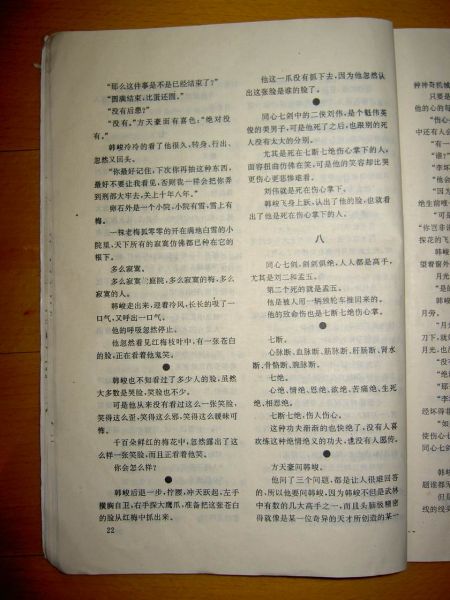 “那么这件事是不是已经结束了？”
“圆满结束，比蛋还圆。”
“没有后患？”
“没有。”方天豪面有喜色：“绝对没
有。”
韩峻冷冷的看了他很久，转身、行出、
忽然又回头。
“你最好记住，下次你再抽这种东西，
最好不要让我看见，否则我一样会把你弄
到刑部大牢去，关上十年八年。”
卵石外是一个小院，小院有雪，雪上有
梅。
一株老梅孤零零的开在满地白雪的小
院里，天下所有的寂寞仿佛都已种在它的
根下。
多么寂寞。
多么寂寞的庭院，多么寂寞的梅，多么
寂寞的人。
韩峻走出来，迎着冷风，长长的吸了一
口气，又呼出一口气。
他的呼吸忽然停止。
他忽然看见红梅枝叶中，有一张苍白
的脸，正在看着他鬼笑。
●
韩峻也不知看过了多少人的脸，虽然
大多数是哭脸，笑脸也不少。
可是他从来没有看过这么一张笑脸，
笑得这么歪，笑得这么邪，笑得这么暧昧可
怖。
千百朵鲜红的梅花中，忽然露出了这
么样一张笑脸，而且正看着他笑。
你会怎么样？
●
韩峻后退一步，拧腰，冲天跃起，左手
横胸自卫，右手探大鹰爪，准备把这张苍白
的脸从红梅中抓出来。
22
他这一爪没有抓下去，因为他忽然认
出这张脸是谁的脸了。
●
同心七剑中的二侠刘伟，是个魁伟英
俊的美男子，可是他死了之后，也跟别的死
人没有太大的分别。
尤其是死在七断七绝伤心掌下的人，
面容扭曲仿佛在笑，可是他的笑容却比哭
更伤心更悲惨难看。
刘伟就是死在伤心掌下。
韩峻飞身上跃，认出了他的脸，也就看
出了他是死在伤心掌下的人。
八
同心七剑，剑剑俱绝，人人都是高手，
尤其是刘二和孟五。
第二个死的就是孟五。
他是被人用一辆独轮车推回来的。
他的致命伤也是七断七绝伤心掌。
●
七断。
心脉断、血脉断、筋脉断、肝肠断、肾水
断、骨骼断、腕脉断。
七绝。
心绝、情绝、恩绝、欲绝、苦痛绝、生死
绝、相思绝。
七断七绝，伤人伤心。
这种功夫渐渐的也快绝了，没有人喜
欢练这种绝情绝义的功夫，也没有人愿传。
●
方天豪问韩峻。
他问了三个问题，都是让人很难回答
的，所以他要问韩峻，因为韩峻不但是武林
中有数的几大高手之一，而且头脑极精密
得就像是某一位奇异的天才所创造的某一